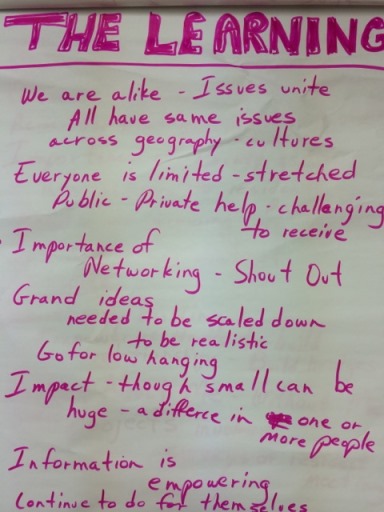 THE LEARNING
We are alike - Issues unite
All have same issues
across geography - cultures
Everyone is limited - stretched
Public - Private help - challenging
to receive
Importance of
Networking - Shout Out
Grand ideas
needed to be scaled down
to be realistic
Go for low hanging
Impact - though small can be
huge - a differce in one or
more people
Information is
empowering
Continue to do for themselves